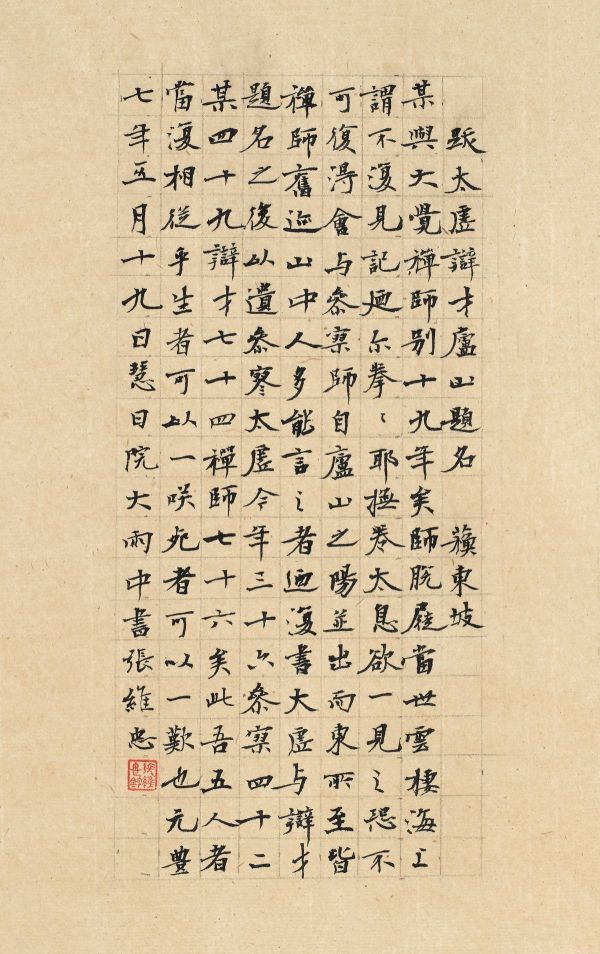 跋太虛辯才廬山題名 蘇東坡
某與大覺禪師別十九年矣師脫屣當世雲棲海上
謂不復見記廼尔拳〻耶撫卷太息欲一見之恐不
可復得會与參寥師自廬山之陽並出而東所至皆
禪師舊迹山中人多能言之者廼復書大虛与辯才
題名之後以遺參寥太虛今年三十六參寥四十二
某四十九辯才七十四禪師七十六矣此吾五人者
當復相從乎生者可以一咲死者可以一歎也元豐
七年五月十九日慧日院大雨中書張維忠